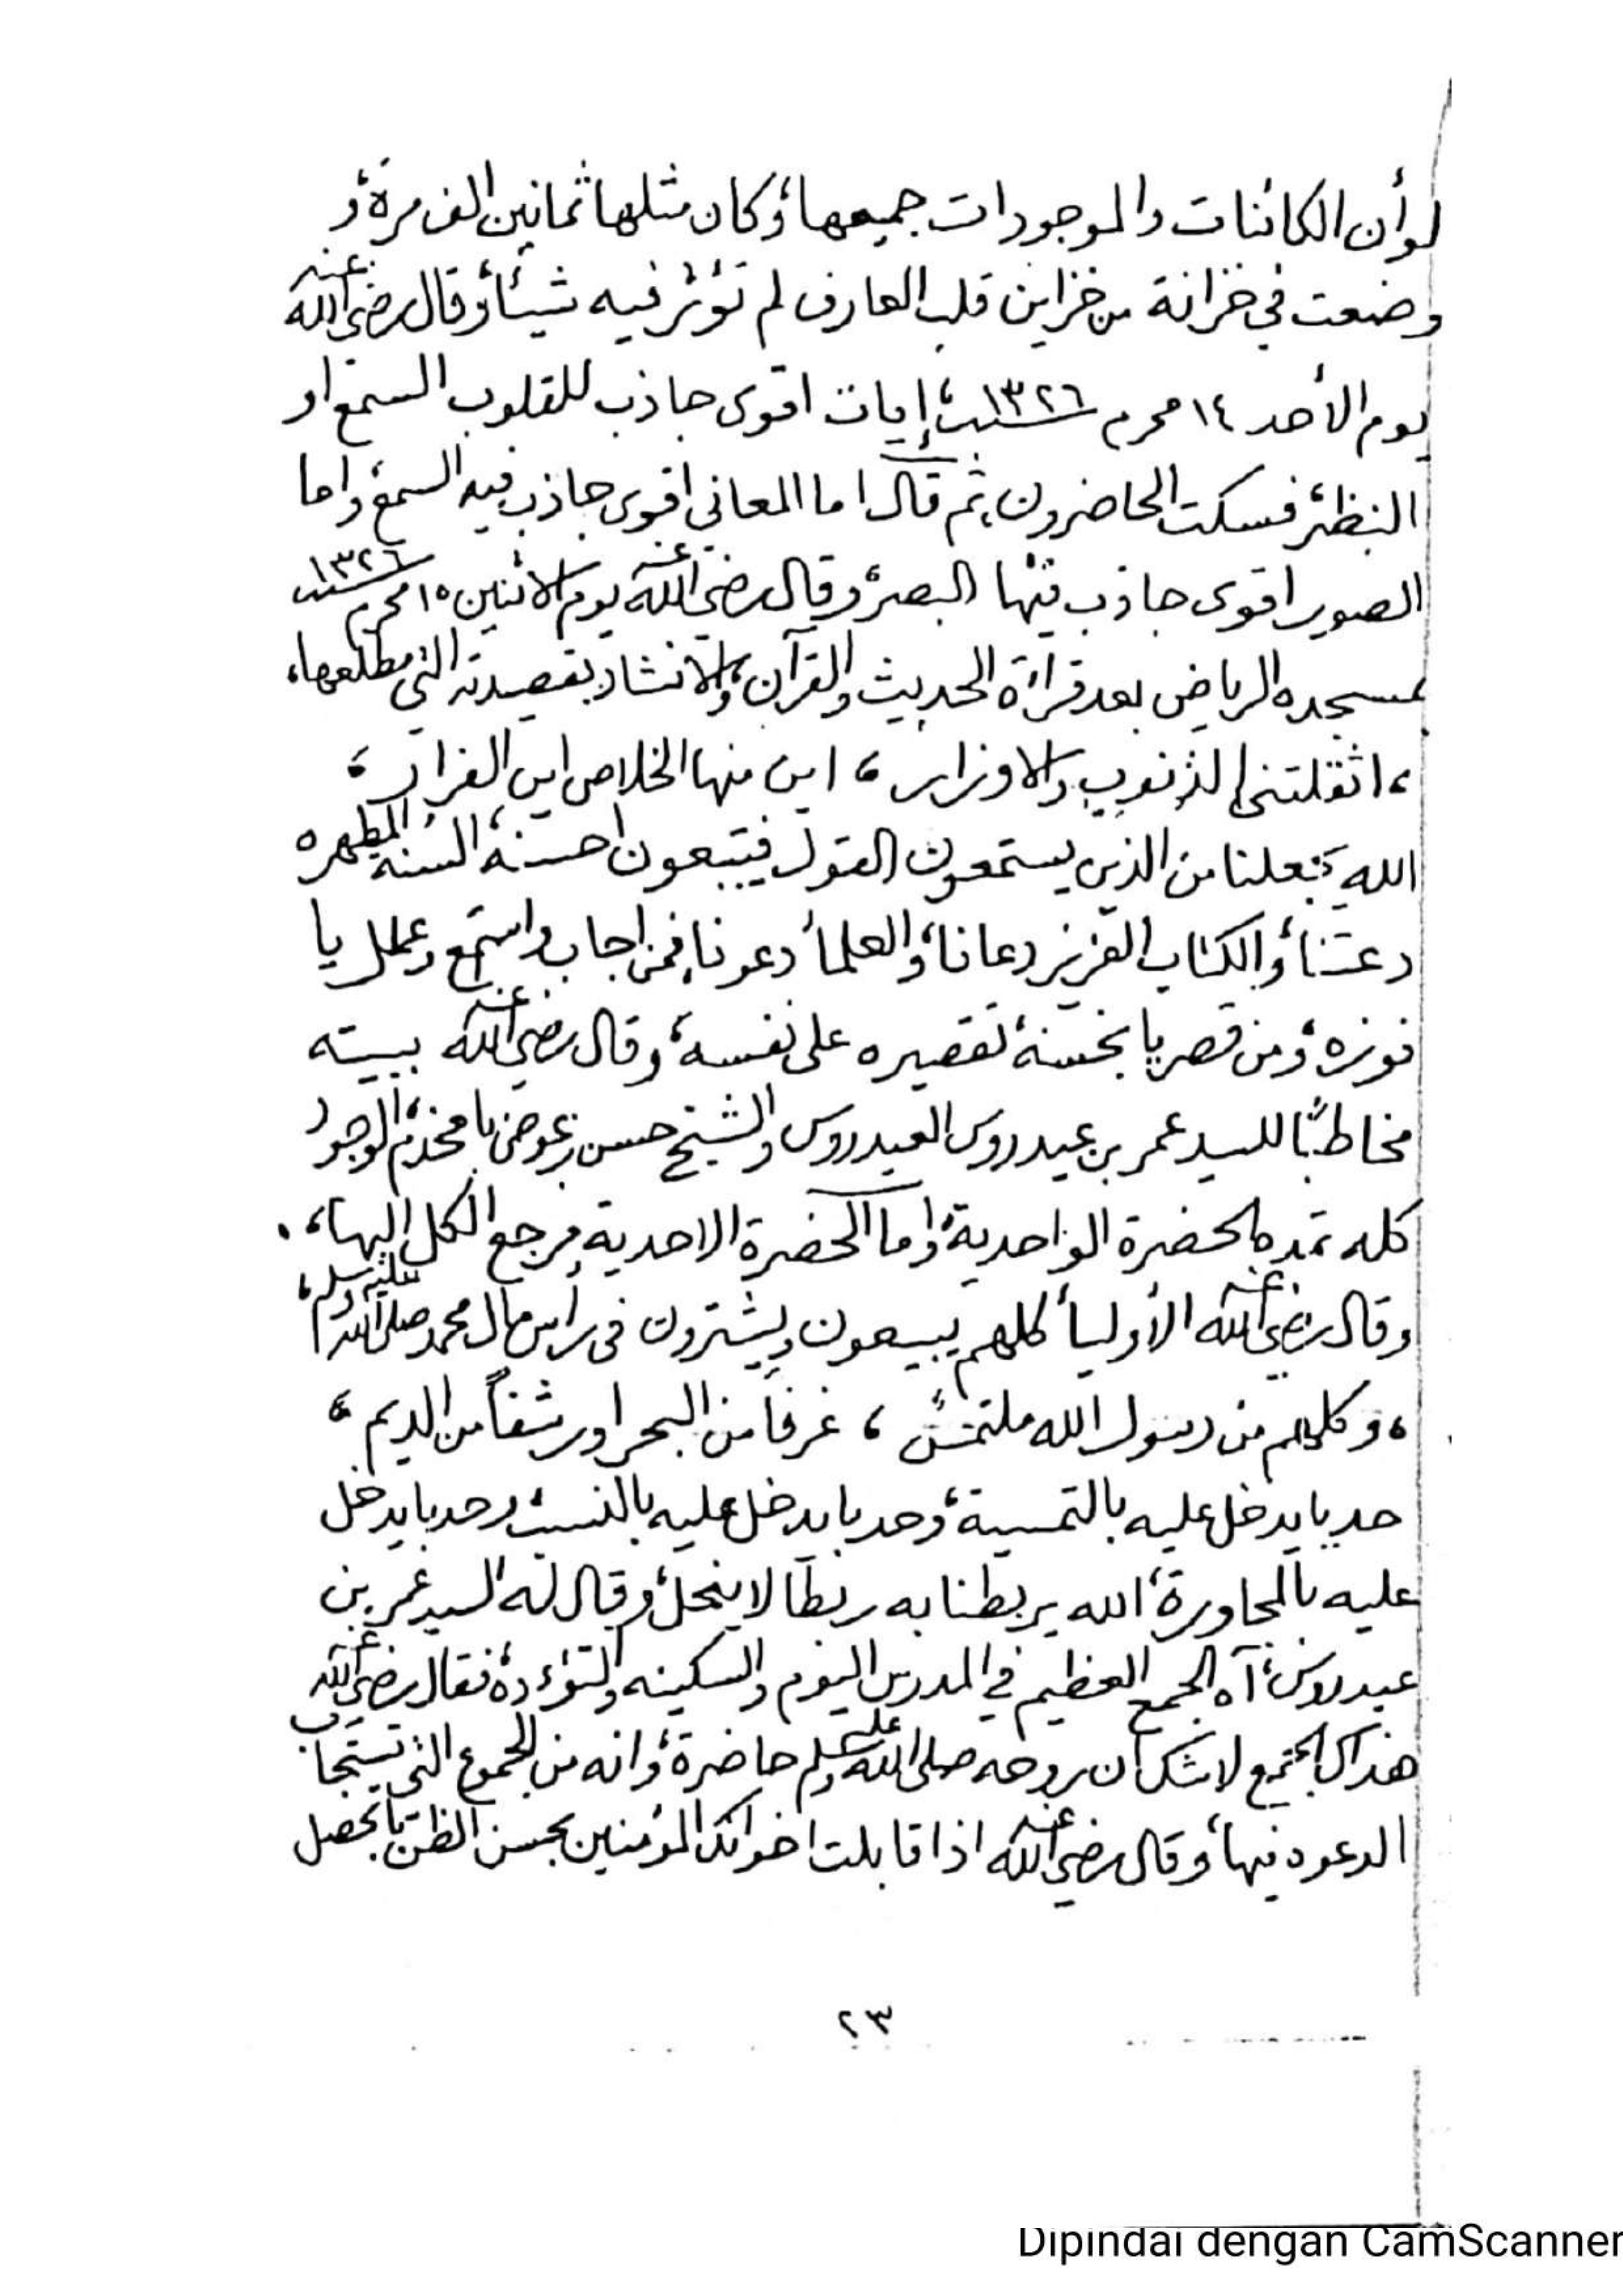 لو أن الكائنات والموجودات جميعها، وكان مثلها ثمانين الف مرة، و
وضعت في خزانة من خزاين قلب العارف لم تؤثر فيه شيئا، وقال رضي الله عنه
يوم الأحد ١٤ محرم سنة ١٣٢٦، إيات اقوى جاذب للقلوب السمع او
النظر، فسكت الحاضرون، ثم قال اما المعاني اقوى جاذب فيه السمع، واما
الصوير اقوى جاذب فيها البصر، وقال رضي الله عنه يوم الاثنين ١٥ محرم سنة ١٣٢٦
بمسجده الرياض بعد قرآة الحديث والقرآن، والانشاد بقصيدته التي مطلعها،
، اثقلتني الذنوب والاوزار ، اين منها الخلاص اين الفرار ،
الله يجعلنا من الذين يستمعون القول فيتبعون احسنه، السنه المطهره
دعتنا، والكتاب العزيز دعانا، والعلمأ دعونا، فمن اجاب واستمع وعمل يا
فوزه، ومن قصر يا بخسنة تقصيره على نفسه، وقال رضي الله عنه ببيته
مخاطبًا للسيد عمر بن عيدروس العيدروس والشيخ حسن بن عوض بامخدم، الوجود
كله تمده الحضرة الواحدية، واما الحضرة الاحدية مرجع الكل اليها، .
وقال رضي الله عنه الأوليأ كلهم يبيعون ويشترون فى رأس مال محمد صلى الله عليه وسلم،
، وكلهم من رسول الله ملتمسٌ ، غرفاً من البحر او رشفاً من الديم ،
حد يا يدخل عليه بالتمسية، وحد يا يدخل عليه بالنسب، وحد يا يدخل
عليه بالمجاورة، الله يربطنا به ربطًا لا ينحل، وقال له السيد عمر بن
عيدروس، آه الجمع العظيم في المدرس اليوم والسكينه والتؤءدة، فقال رضي الله عنه
هذاك المجتمع لا شك ان روحه صلى الله عليه وسلم حاضرة، وانه من الجموع التي تستجاب
الدعوه فيها، وقال رضي الله عنه اذا قابلت اخوانك المؤمنين بحسن الظن يا يحصل
٢٣
Dipindai dengan CamScanner